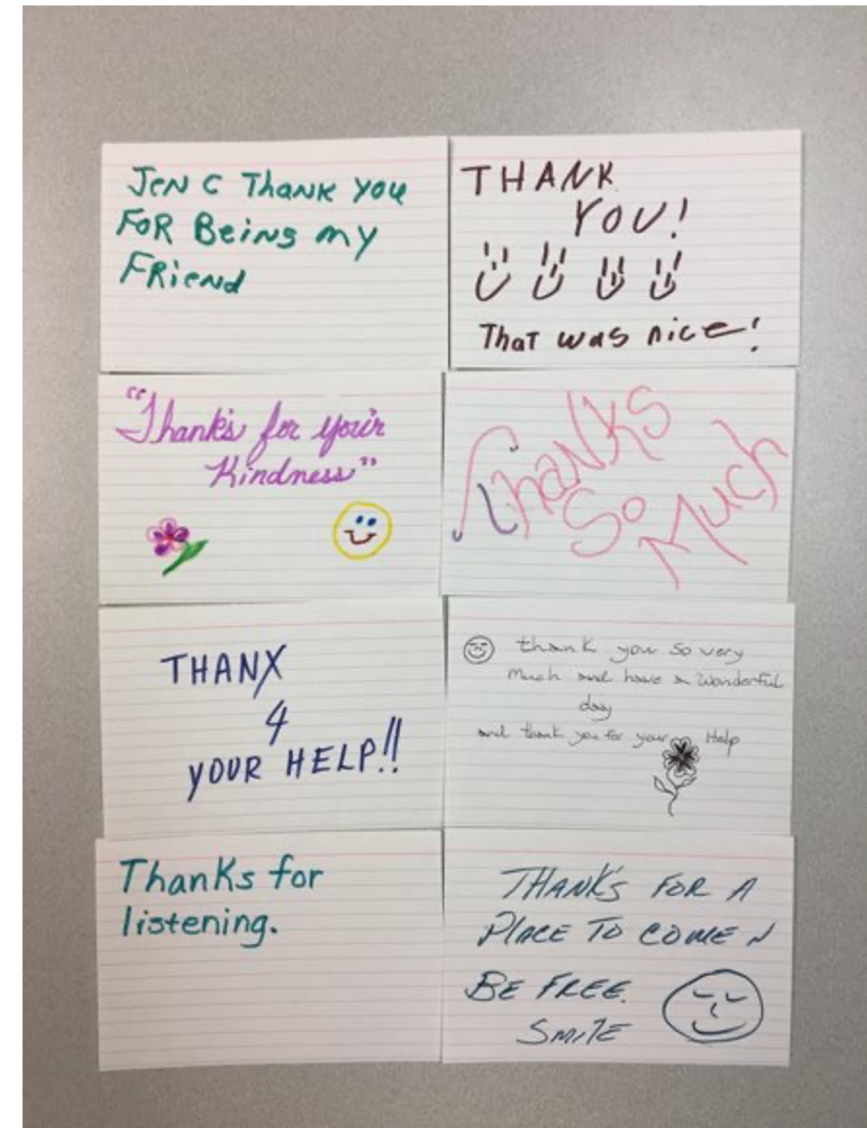 JEN C THANK YOU
FOR BEiNG my
FRiEND
THANK
YOU!
THAT was nice!
"Thank's for your
Kindness"
ThaNKS
So
Much
THANX
4
YOUR HELP!!
thank you so very
much and have a wonderful
day
and thank you for your Help
Thanks for
listening.
THANK'S FOR A
PLACE TO COME N
BE FREE.
SMILE